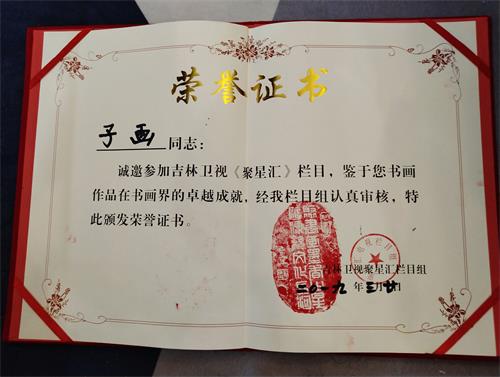 荣誉证书
子画 同志：
诚邀参加吉林卫视《聚星汇》栏目，鉴于您书画
作品在书画界的卓越成就，经我栏目组认真审核，特
此颁发荣誉证书。
吉林卫视聚星汇栏目组
二〇一九年三月